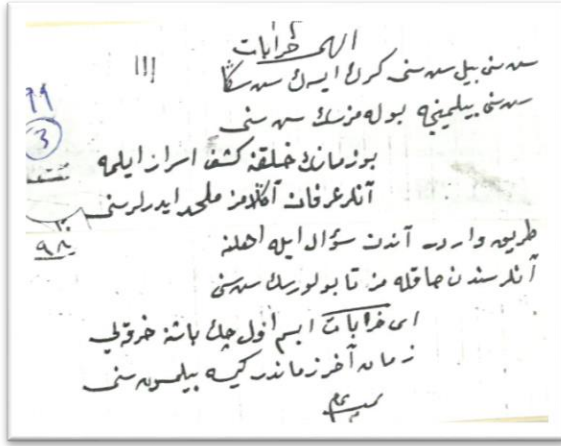 الهی خرابات
١١١
سن سنی بیل سن سنی كرك ایسەك سن سكا
سن سنی بیلمینجه بوله مزسك سن سنی
٩٩
3
بو زمانك خلقنه كشف اسرار ایلمه
آنلر عرفان آكلامز ملحد ایدرلر سنی
طریق واردر آندن سؤال ایله اهلنه
٩٨
آنلر سندن صاقله مز تا بولورسك سن سنی
ای خرابات ابسم اول چك باشنه خرقه لی
زمان آخر زماندر كیمسه بیلمسون سنی